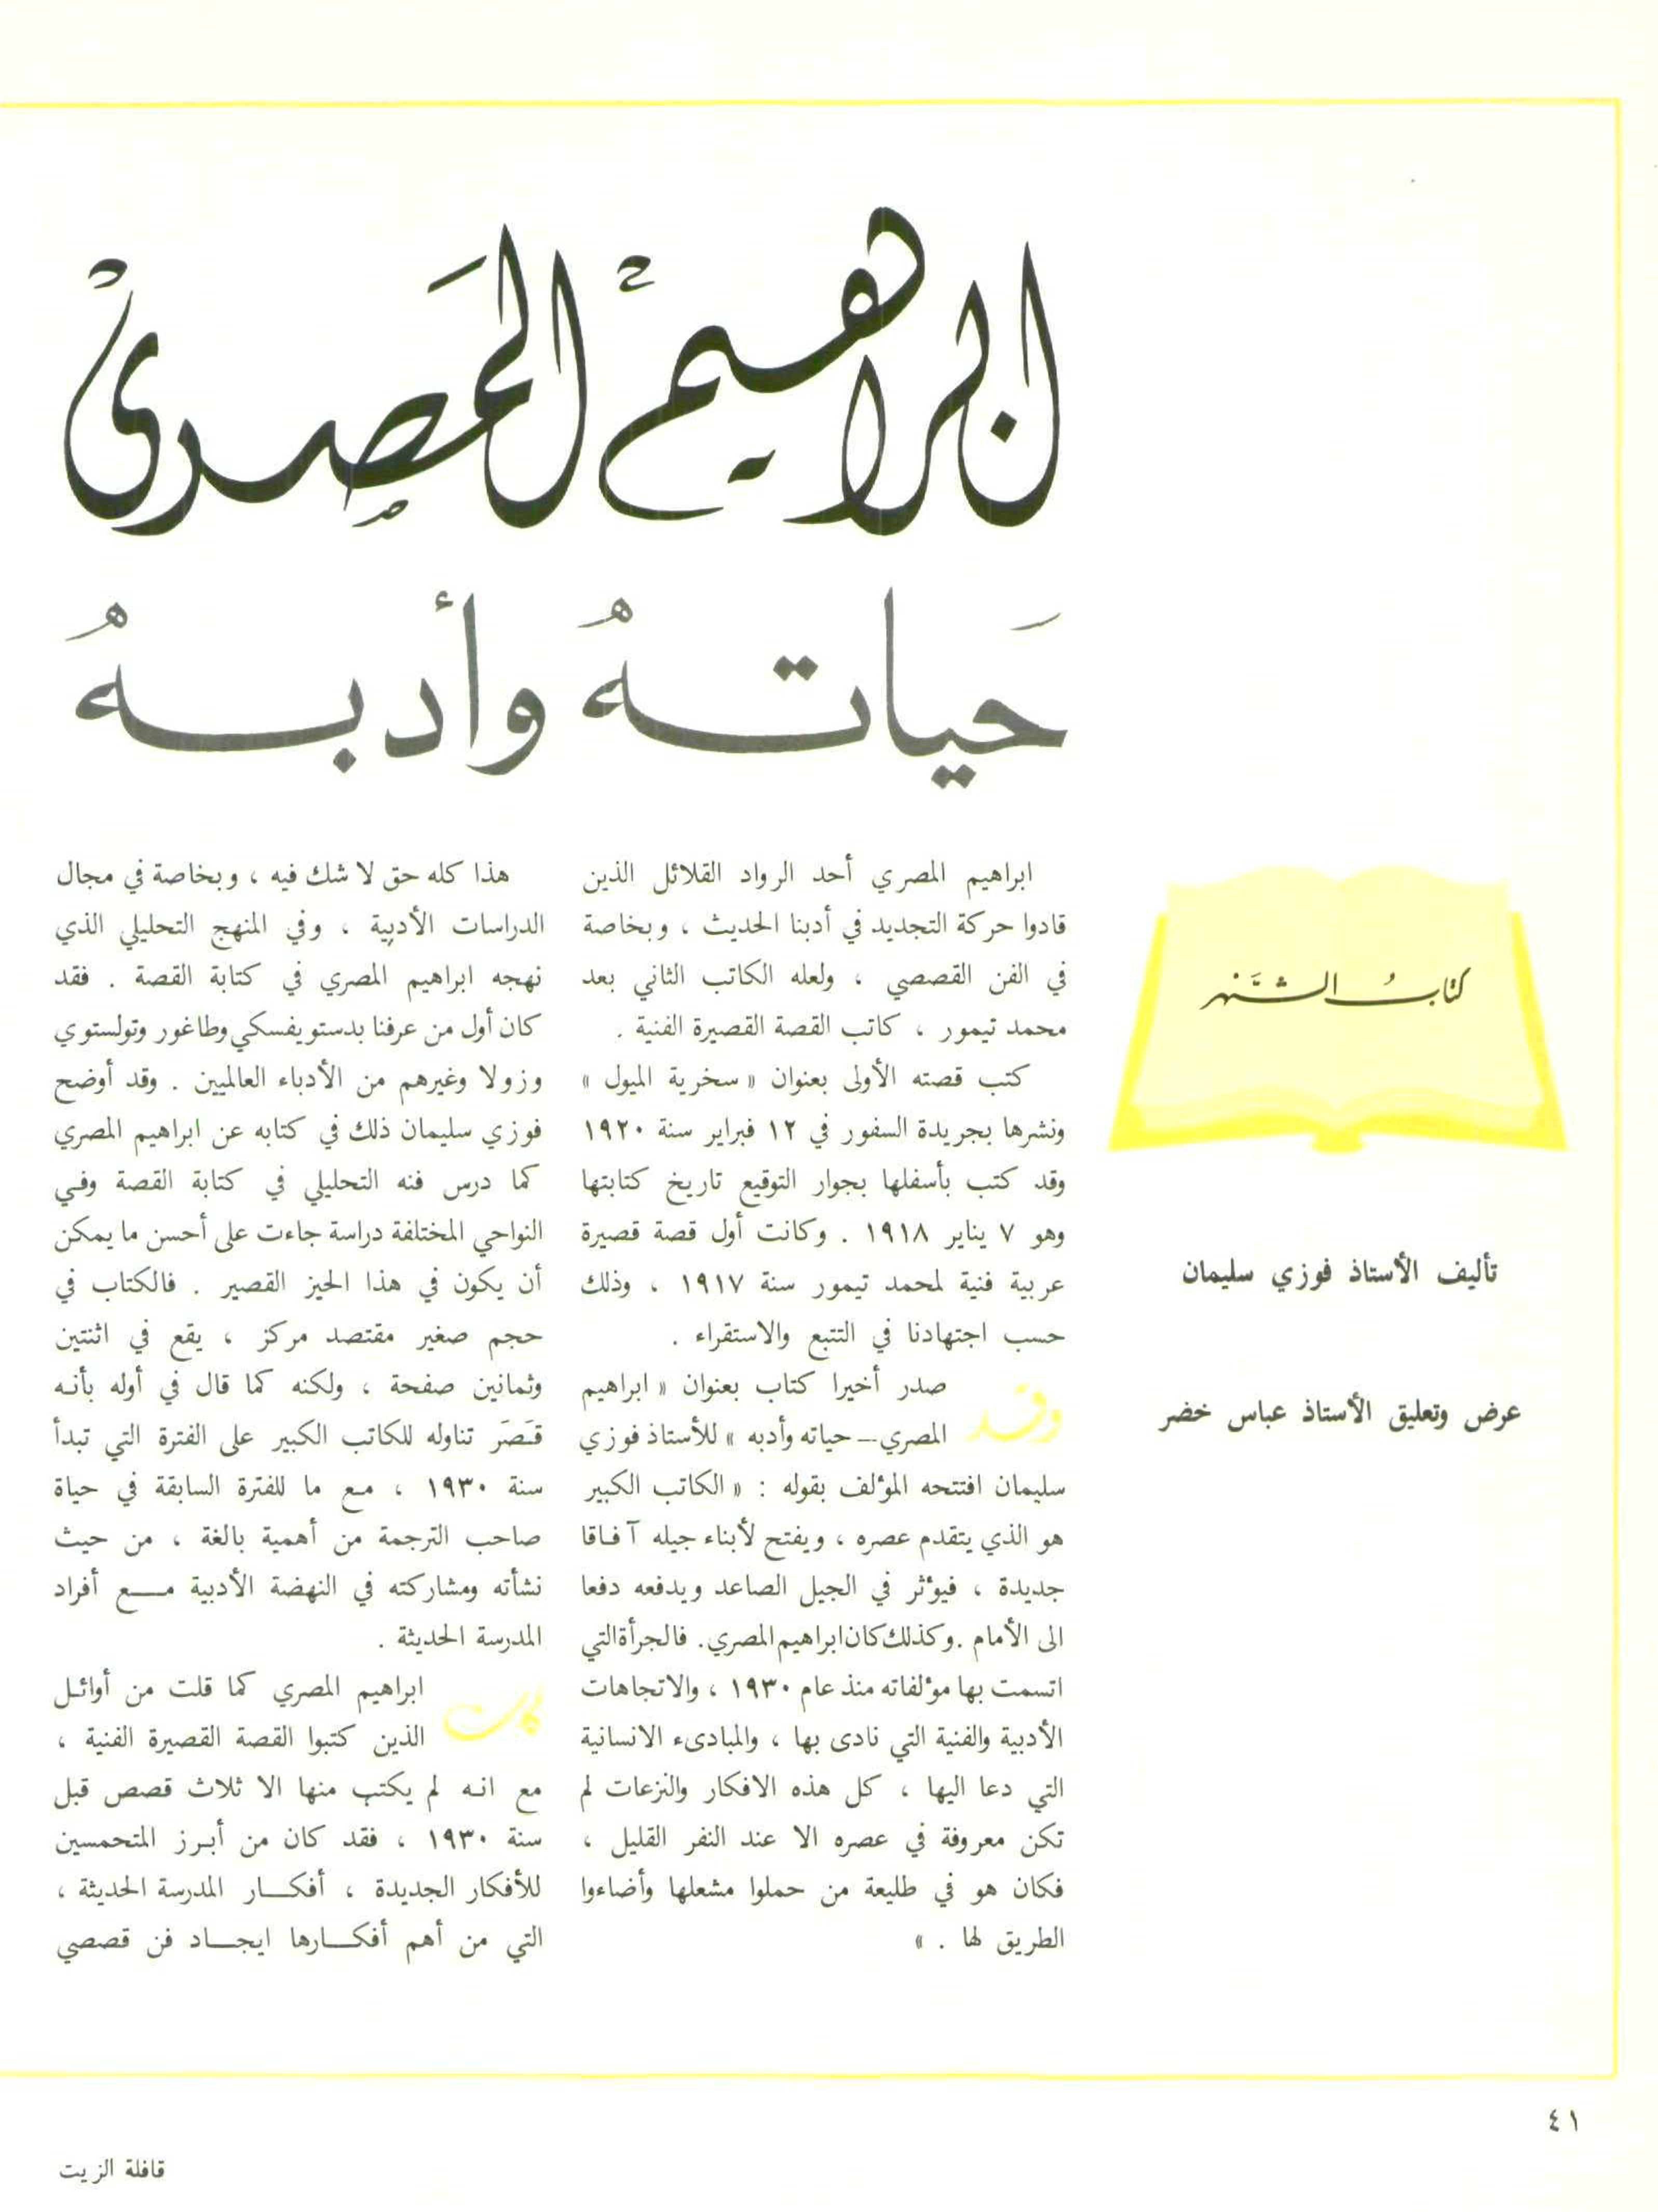 ابراهيم المصرى
حياته وأدبه
كتاب الشهر
تأليف الأستاذ فوزي سليمان
عرض وتعليق الأستاذ عباس خضر
ابراهيم المصري أحد الرواد القلائل الذين
قادوا حركة التجديد في أدبنا الحديث ، وبخاصة
في الفن القصصي ، ولعله الكاتب الثاني بعد
محمد تيمور ، كاتب القصة القصيرة الفنية .
كتب قصته الأولى بعنوان « سخرية الميول »
ونشرها بجريدة السفور في ١٢ فبراير سنة ١٩٢٠
وقد كتب بأسفلها بجوار التوقيع تاريخ كتابتها
وهو ٧ يناير ١٩١٨ . وكانت أول قصة قصيرة
عربية فنية لمحمد تيمور سنة ١٩١٧ ، وذلك
حسب اجتهادنا في التتبع والاستقراء .
وقد صدر أخيرا كتاب بعنوان « ابراهيم
المصري – حياته وأدبه » للأستاذ فوزي
سليمان افتتحه المؤلف بقوله : « الكاتب الكبير
هو الذي يتقدم عصره ، ويفتح لأبناء جيله آفاقا
جديدة ، فيؤثر في الجيل الصاعد ويدفعه دفعا
الى الأمام . وكذلك كان ابراهيم المصري . فالجرأة التي
اتسمت بها مؤلفاته منذ عام ١٩٣٠ ، والاتجاهات
الأدبية والفنية التي نادى بها ، والمبادىء الانسانية
التي دعا اليها ، كل هذه الافكار والنزعات لم
تكن معروفة في عصره الا عند النفر القليل ،
فكان هو في طليعة من حملوا مشعلها وأضاءوا
الطريق لها . »
هذا كله حق لا شك فيه ، وبخاصة في مجال
الدراسات الأدبية ، وفي المنهج التحليلي الذي
نهجه ابراهيم المصري في كتابة القصة . فقد
كان أول من عرفنا بدستويفسكي وطاغور وتولستوي
وزولا وغيرهم من الأدباء العالميين . وقد أوضح
فوزي سليمان ذلك في كتابه عن ابراهيم المصري
كما درس فنه التحليلي في كتابة القصة وفي
النواحي المختلفة دراسة جاءت على أحسن ما يمكن
أن يكون في هذا الحيز القصير . فالكتاب في
حجم صغير مقتصد مركز ، يقع في اثنتين
وثمانين صفحة ، ولكنه كما قال في أوله بأنه
قَصَرَ تناوله للكاتب الكبير على الفترة التي تبدأ
سنة ١٩٣٠ ، مع ما للفترة السابقة في حياة
صاحب الترجمة من أهمية بالغة ، من حيث
نشأته ومشاركته في النهضة الأدبية مع أفراد
المدرسة الحديثة .
كان ابراهيم المصري كما قلت من أوائل
الذين كتبوا القصة القصيرة الفنية ،
مع انه لم يكتب منها الا ثلاث قصص قبل
سنة ١٩٣٠ ، فقد كان من أبرز المتحمسين
للأفكار الجديدة ، أفكار المدرسة الحديثة ،
التي من أهم أفكارها ايجاد فن قصصي
٤١
قافلة الزيت